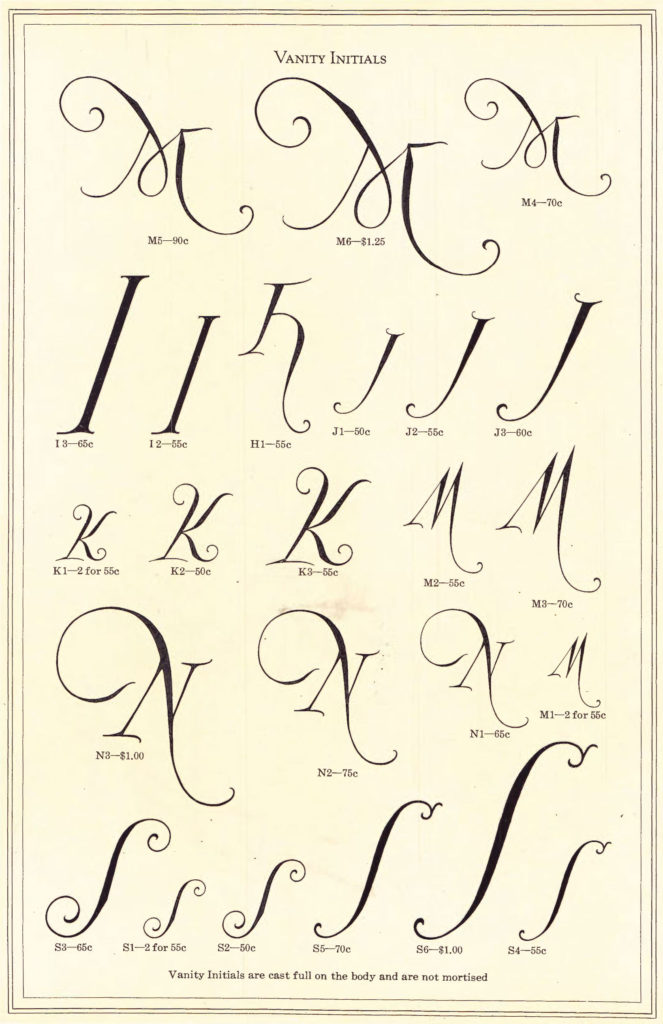 Vanity Initials
M M M
M5—90c M6—$1.25 M4—70c
I I H J J J
I 3—65c I 2—55c H1—55c J1—50c J2—55c J3—60c
K K K M M
K1—2 for 55c K2—50c K3—55c M2—55c M3—70c
N N N M
N3—$1.00 N2—75c N1—65c M1—2 for 55c
S S S S S S
S3—65c S1—2 for 55c S2—50c S5—70c S6—$1.00 S4—55c
Vanity Initials are cast full on the body and are not mortised